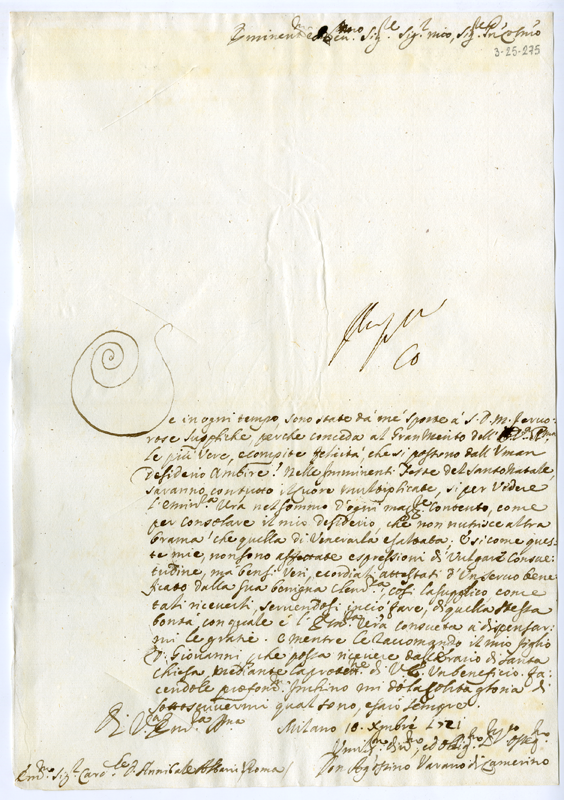 Eminentissimo Sig.re Sig.r mio, Sig.re
3-25-275
Co
Se in ogni tempo, sono state da me sporte á S. D. M. feruo=
rose suppliche, perche conceda al Gran Merito dell'
le più Vere, e compite felicità che si possono dall'Uman
desiderio Ambire! Nelle imminenti Feste del Santo Natale,
saranno, con tutto il cuore multiplicate, si per Videre
l'Em.za Vra nel sommo d'ogni mag.re Contento, come
per consolare il mio desiderio, che non nutrisce altra
brama! che quella di Venerarla esaltata: E si come ques=
te mie, non sono affettate espressioni di Vulgare Consue=
tudine, ma bensi Veri, e cordiali attestati d'Un seruo bene=
ficato dalla sua benigna Clem.za, così la supplico come
tali riceverli, seruendosi in ciò fare, di quella stessa
bontà, con quale è l'Em.za Vra consueta a dispensar=
mi le grazie. E mentre le raccomando il mio figlio
D. Giovanni, che possa ricevere dall'Erario di Santa
Chiesa, mediante la protett.ne di V.E. Un beneficio. fa=
cendole profond. inchino mi dò la solita gloria di
sottoscriuermi qual sono, e sarò sempre.
Di V.ra Em.za
Milano 10. Xmbre 1721
Don Agostino Varano di Camerino
Em.mo Sig.r Card.le D. Annibale Albani Roma